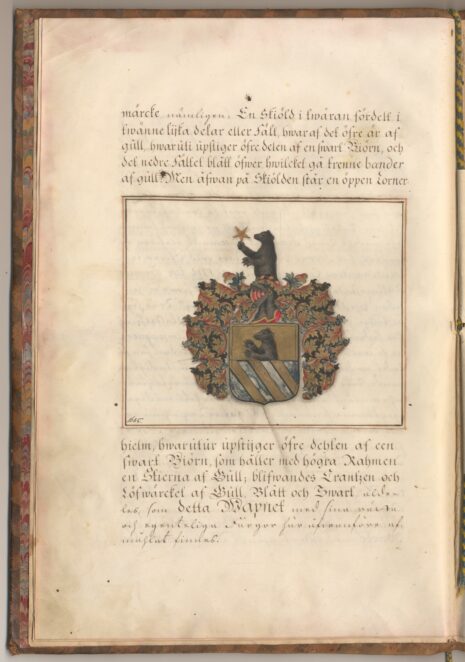 märcke nämligen. En Skiöld i twäran fördelt i
twänne lijka delar eller Fält, hwaraf det öfre är af
gull, hwaruti upstiger öfre delen af en swart Biörn, och
det nedre Fältet blått öfwer hwilcket gå trenne bander
af gull. Men åfwan på Skiölden står en öppen Torner
hielm, hwarutur upstijger öfre dehlen af een
swart Biörn, som håller med högra Rahmen
en Stierna af Gull; blifwandes Crantzen och
Löfwärcket af Gull, Blått och Swart alde-
les, som detta Wapnet med sina rätta
och egentelige Färgor här åfwanföre af
måhlat finnes.